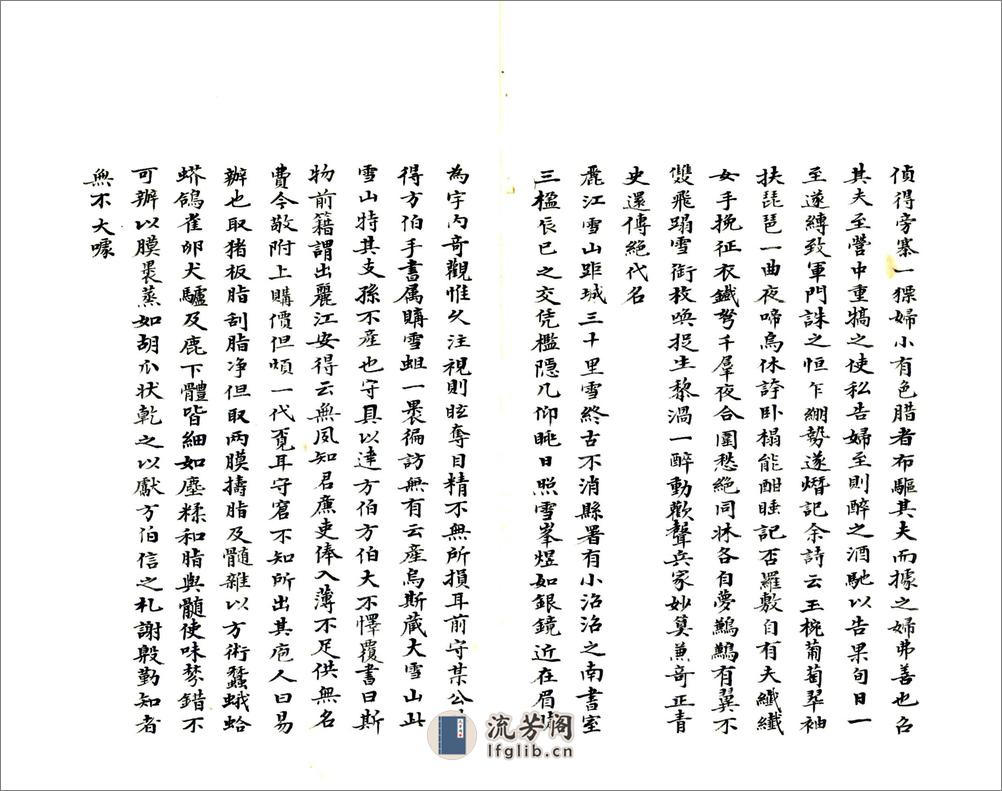 偵得旁寨一猓婦小有色腊者布驅其夫而據之婦弗善也召
其夫至營中重犒之使私告婦至則醉之酒馳以告果旬日一
至遂縳致軍門誅之恒乍綳勢遂熸記余詩云玉椀葡萄翠袖
扶琵琶一曲夜啼烏休誇臥榻能酣睡記否羅敷自有夫纖纖
女手挽征衣鐵弩千羣夜合圍愁絕同牀各自夢鶼鶼有翼不
雙飛蹋雪銜枚喚捉生黎渦一醉動歡聲兵家妙算兼奇正青
史還傳絕代名
麗江雪山距城三十里雪終古不消縣署有小沼沼之南書室
三楹辰巳之交凭檻隱几仰眺日照雪峯煜如銀鏡近在眉
為宇內奇觀惟久注視則眩奪目精不無所損耳前守某公
得方伯手書属購雪蛆一裹徧訪無有云產烏斯藏大雪山此
雪山特其支孫不產也守具以達方伯方伯大不懌覆書曰斯
物前籍謂出麗江安得云無夙知君㢘吏俸入薄不足供無名
費今敬附上購價但煩一代覓耳守窘不知所出其庖人曰易
辦也取猪板脂刮脂净但取兩膜擣脂及髓雜以方術蠶蛾蛤
蟒鴿雀卵犬驢及鹿下體皆細如塵糅和脂與髓使味棽錯不
可辦以膜裹蒸如胡爪狀乾之以獻方伯信之札謝殷勤知者
無不大噱
流芳阁
lfglib.cn